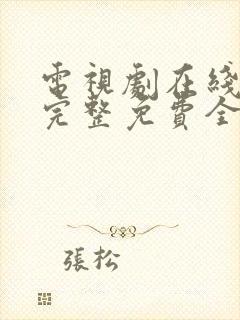 電視劇在綫
完整免費全
張松